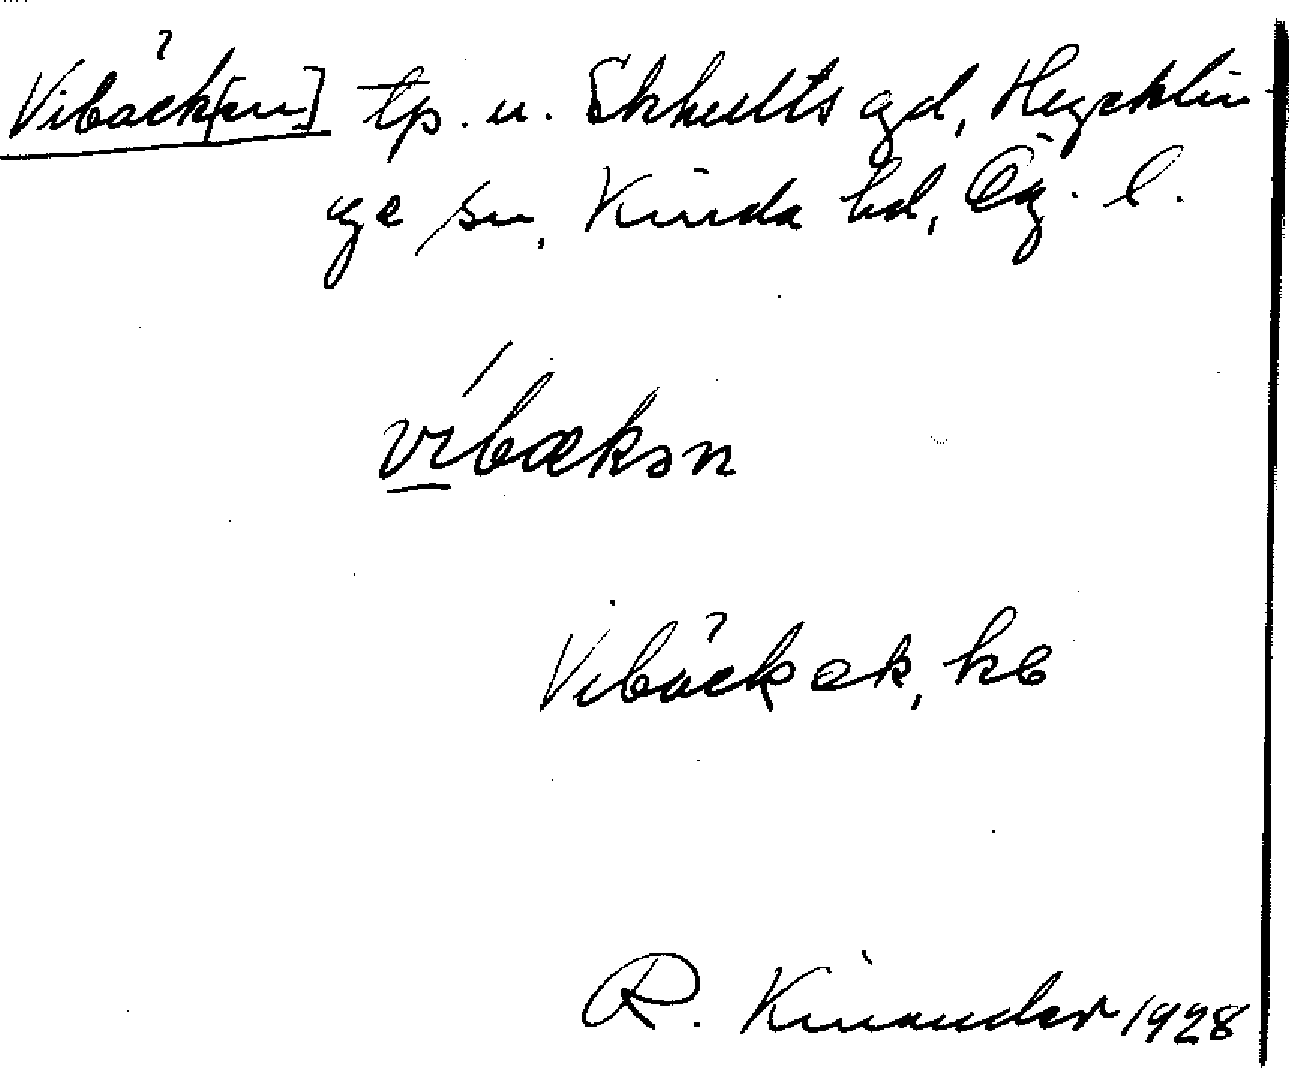 Vibäck[en] tp. u. Ekhults gd, Hycklin-
ge sn, Kinda hd, Ög. l.
víbækən
Vibäck ek, kb
R. Kinander 1928